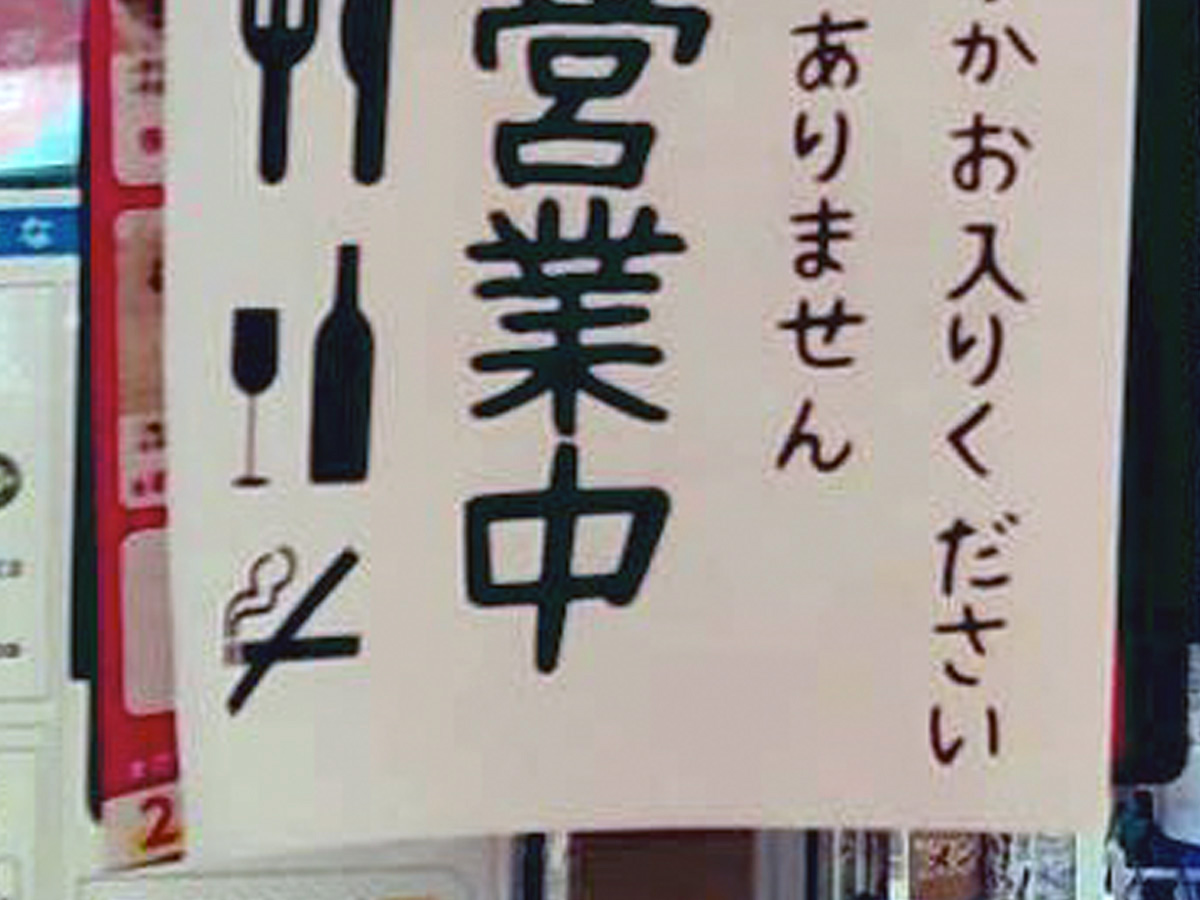 かお入りください
ありません
営業中
な
2
メン